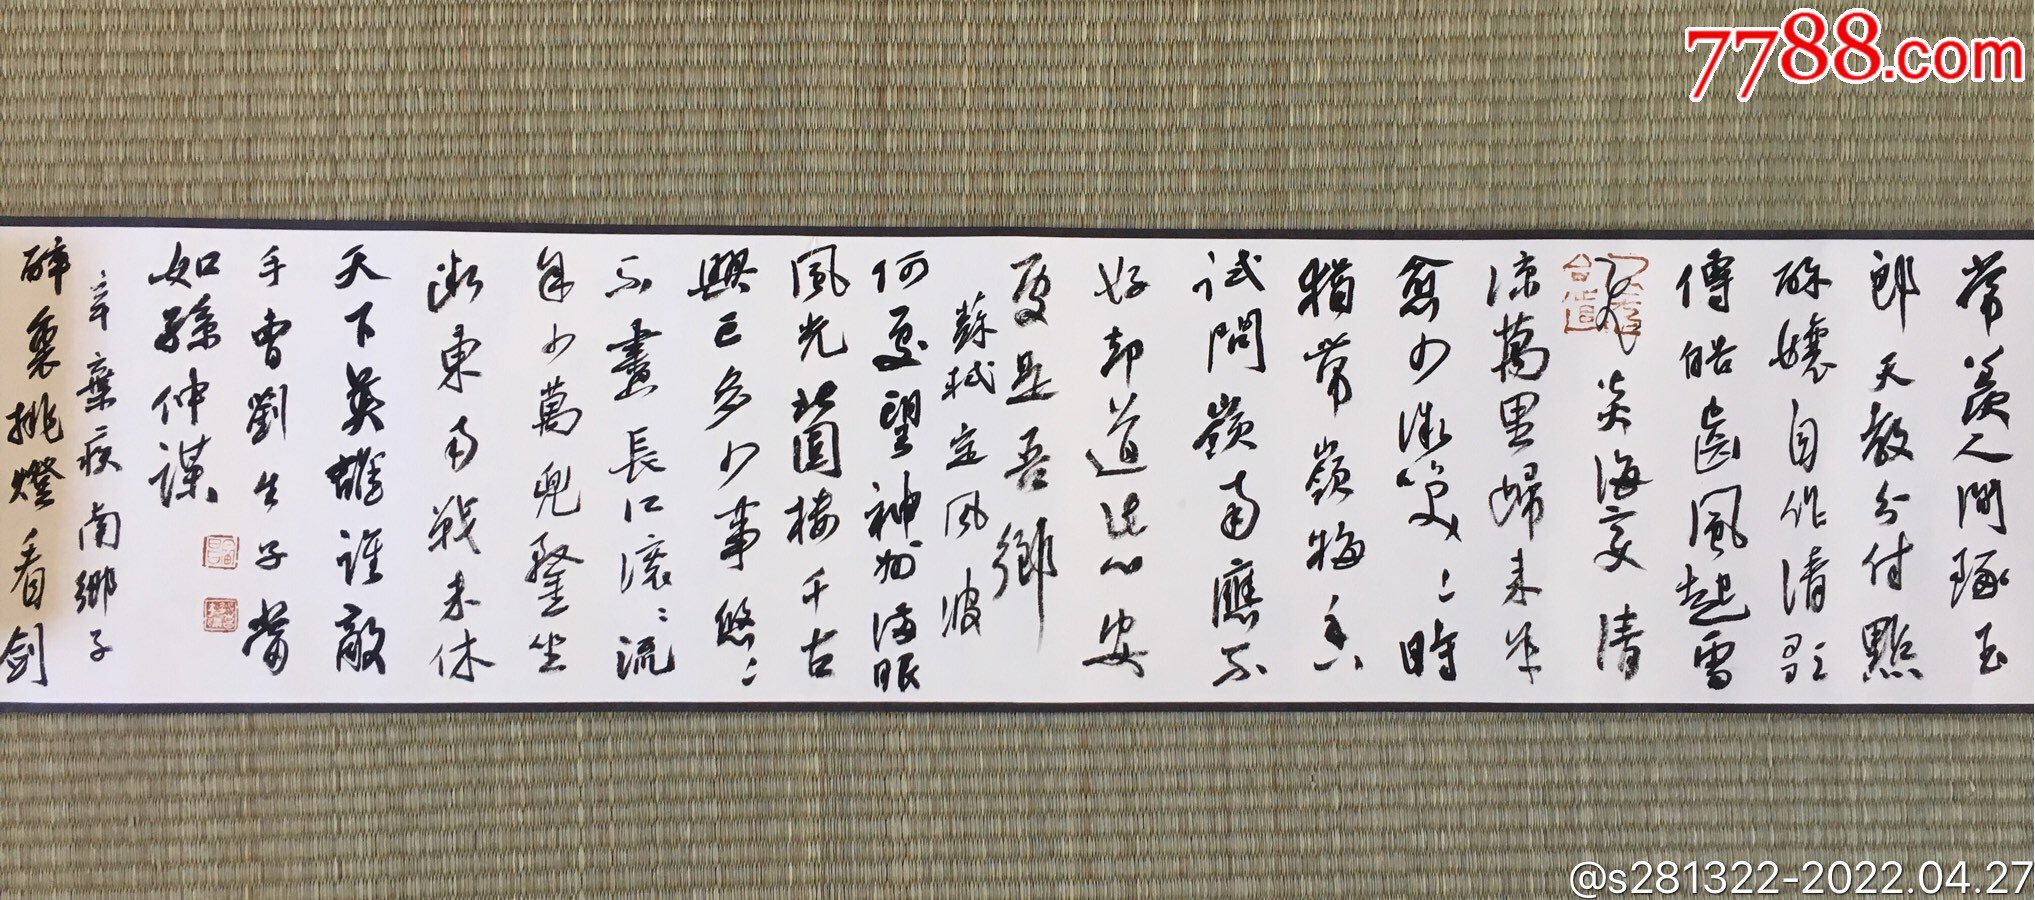 常羨人間琢玉
郎天教分付點
酥孃自作清歌
傳皓齒風起雪
飛炎海变清
涼萬里歸来年
愈少微笑〻時
猶帶嶺梅香
試問嶺南應不
好却道此心安
處是吾鄉
蘇軾定風波
何處望神州滿眼
風光北固樓千古
興亡多少事悠〻
不盡長江滾〻流
年少萬兜鍪坐
斷東南戰未休
天下英雄誰敵
手曹劉生子當
如孫仲謀
辛棄疾南鄉子
醉裏挑燈看劍
7788.com
@s281322-2022.04.27